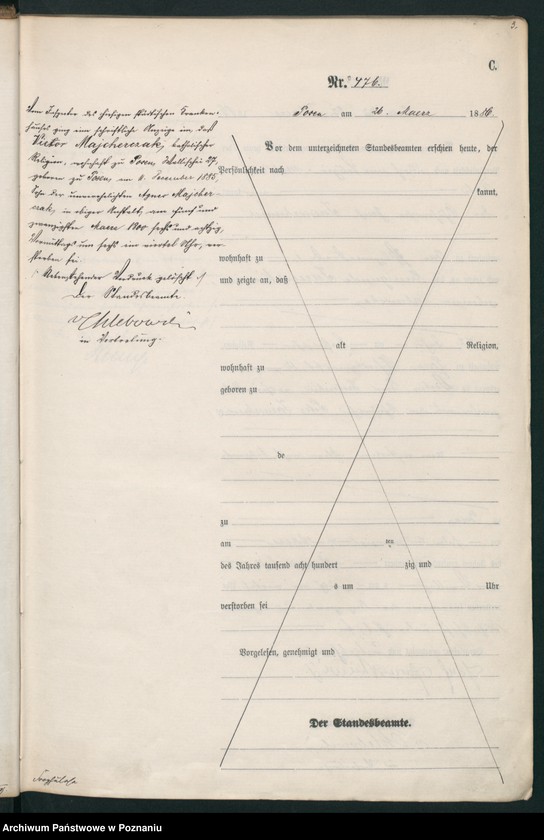 3.
C.
Nr. 476.
Posen am 26. Maerz 1886.
Vom Inhaber des hiesigen städtischen Kranken-
hauses ging eine schriftliche Anzeige ein, daß
Victor Majchererak, katholischer
Religion, wohnhaft zu Posen, Wallischei 27,
geboren zu Posen, am 8. December 1885,
Sohn der unverehelichten Agnes Majcher
erak, in obiger Anstalt, am fünf und
zwanzigsten Maerz 1800 sechs und achtzig,
Vormittags um sechs ein viertel Uhr, ver
storben sei.
Nebenstehender Vordruck gelöscht.
Der Standesbeamte
v Chlebowski
in Vertretung.
Vor dem unterzeichneten Standesbeamten erschien heute, der
Persönlichkeit nach
kannt,
wohnhaft zu
und zeigte an, daß
alt Religion,
wohnhaft zu
geboren zu
de
zu
am ten
des Jahres tausend acht hundert zig und
s um Uhr
verstorben sei
Vorgelesen, genehmigt und
Der Standesbeamte.
Archiwum Państwowe w Poznaniu